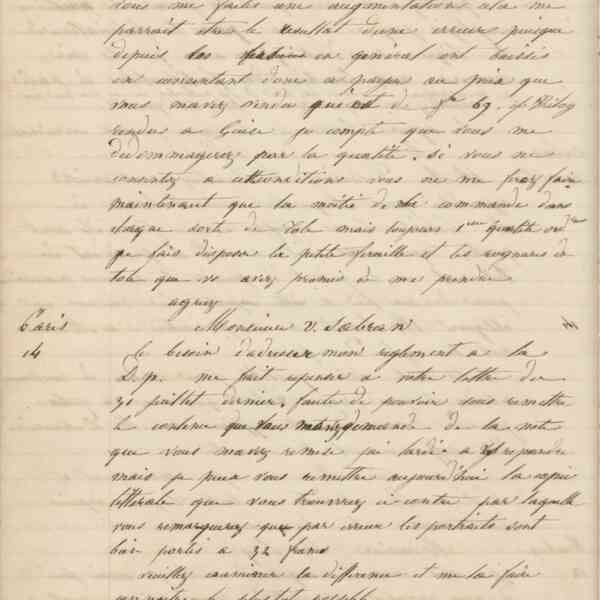 vous me faites une augmentation cela me
parrait etre le resultat d'une erreur puisque
depuis les fontes en général ont baissés
en consentant donc a payer au prix que
vous m'avez vendu de f 69. %kilog
rendus a Guise je compte que vous me
dedommagerez par la quantité. si vous ne
consentez a conditions vous ne me frez faire
maintenant que la moitié de commande dans
chaque sorte de Tole mais toujours 1ere quantité
je fais disposer la petite feraille et les rognures de
tole que vs avez promis de me prendre
agreez
Paris Monsieur V. Sabran
14 le besoin d'adresser mon reglement a la
me fait repenser a votre lettre du
31 juillet dernier. faute de pouvoir vous remettre
le contenu demande de la note
que vous m'avez remise j'ai tardé a repondre
mais je puis vous remettre aujourd'hui la copie
littérale que vous trouverez ci contre par laquelle
vous remarquerez que par erreur les portraits sont
bien portés a 32 francs
veuillez examiner la différence et me la faire
connaitre le plustot possible